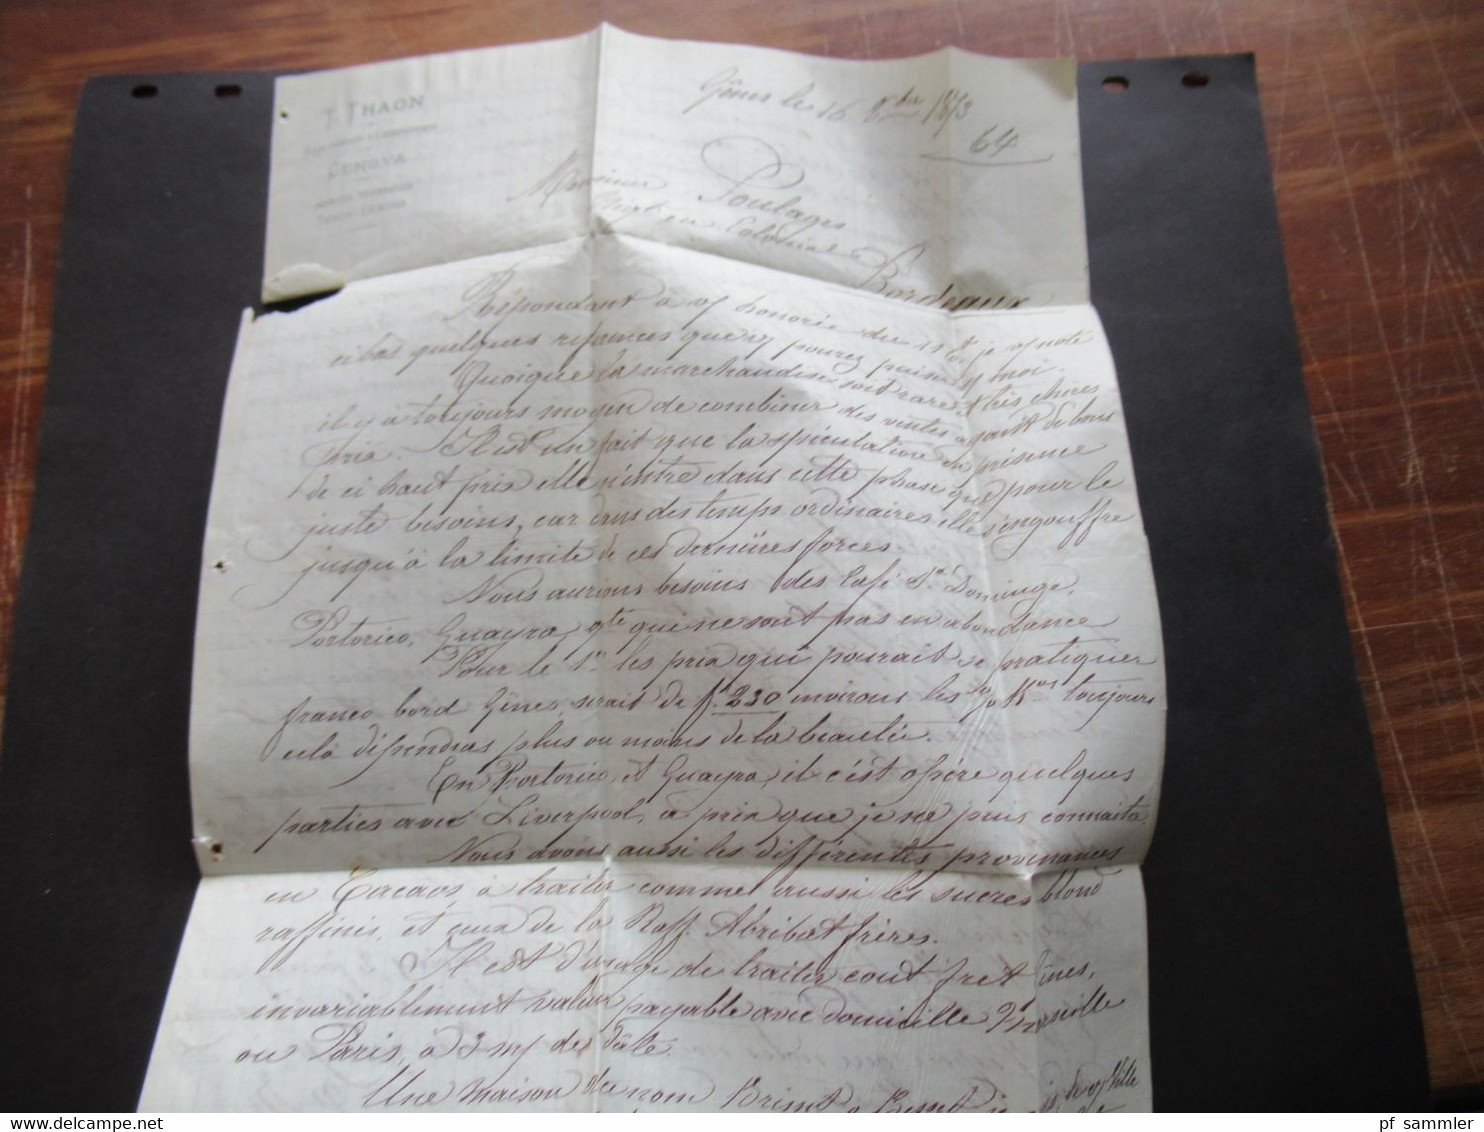 T. THAON
GENOVA
Gênes le 16 8bre 1873
64
Monsieur Poulages
Négt en Coloniaux
Bordeaux
Répondant à vf honorée du 11 ct je vf note
ci bas quelques réfénces que vf pourez puiser
Quoique la marchandise soit rare et très chères
il y a toujours moyen de combiner des ventes ayant de bons
prix. Il est un fait que la spéculation en présence
de ci haut prix elle n'entre dans cette phase que pour le
juste besoins, car dans des temps ordinaires elle s'engouffre
jusqu'à la limite de ces dernières forces.
Nous aurions besoins des Café St Domingo,
Portorico, Guayra, qté qui ne sont pas en abondance
Pour le 1er les prix qui pourait se pratiquer
franco bord Gênes, serait de f. 230 environs les % Kos toujours
cela dépendras plus ou moins de la beautée.
En Portorico, et Guayra, il c'est opéré quelques
parties avec Liverpool, à prix que je ne puis connaitre
Nous avons aussi les différentes provenances
en Cacaos à traiter comme aussi les sucres blond
raffinés, et ceux de la Raff. Abribat frères.
Il est d'usage de traiter cout fret Gênes,
invariablement valeur payable avec domicille Marseille
ou Paris, à 3 m/ de date.
Une maison du nom